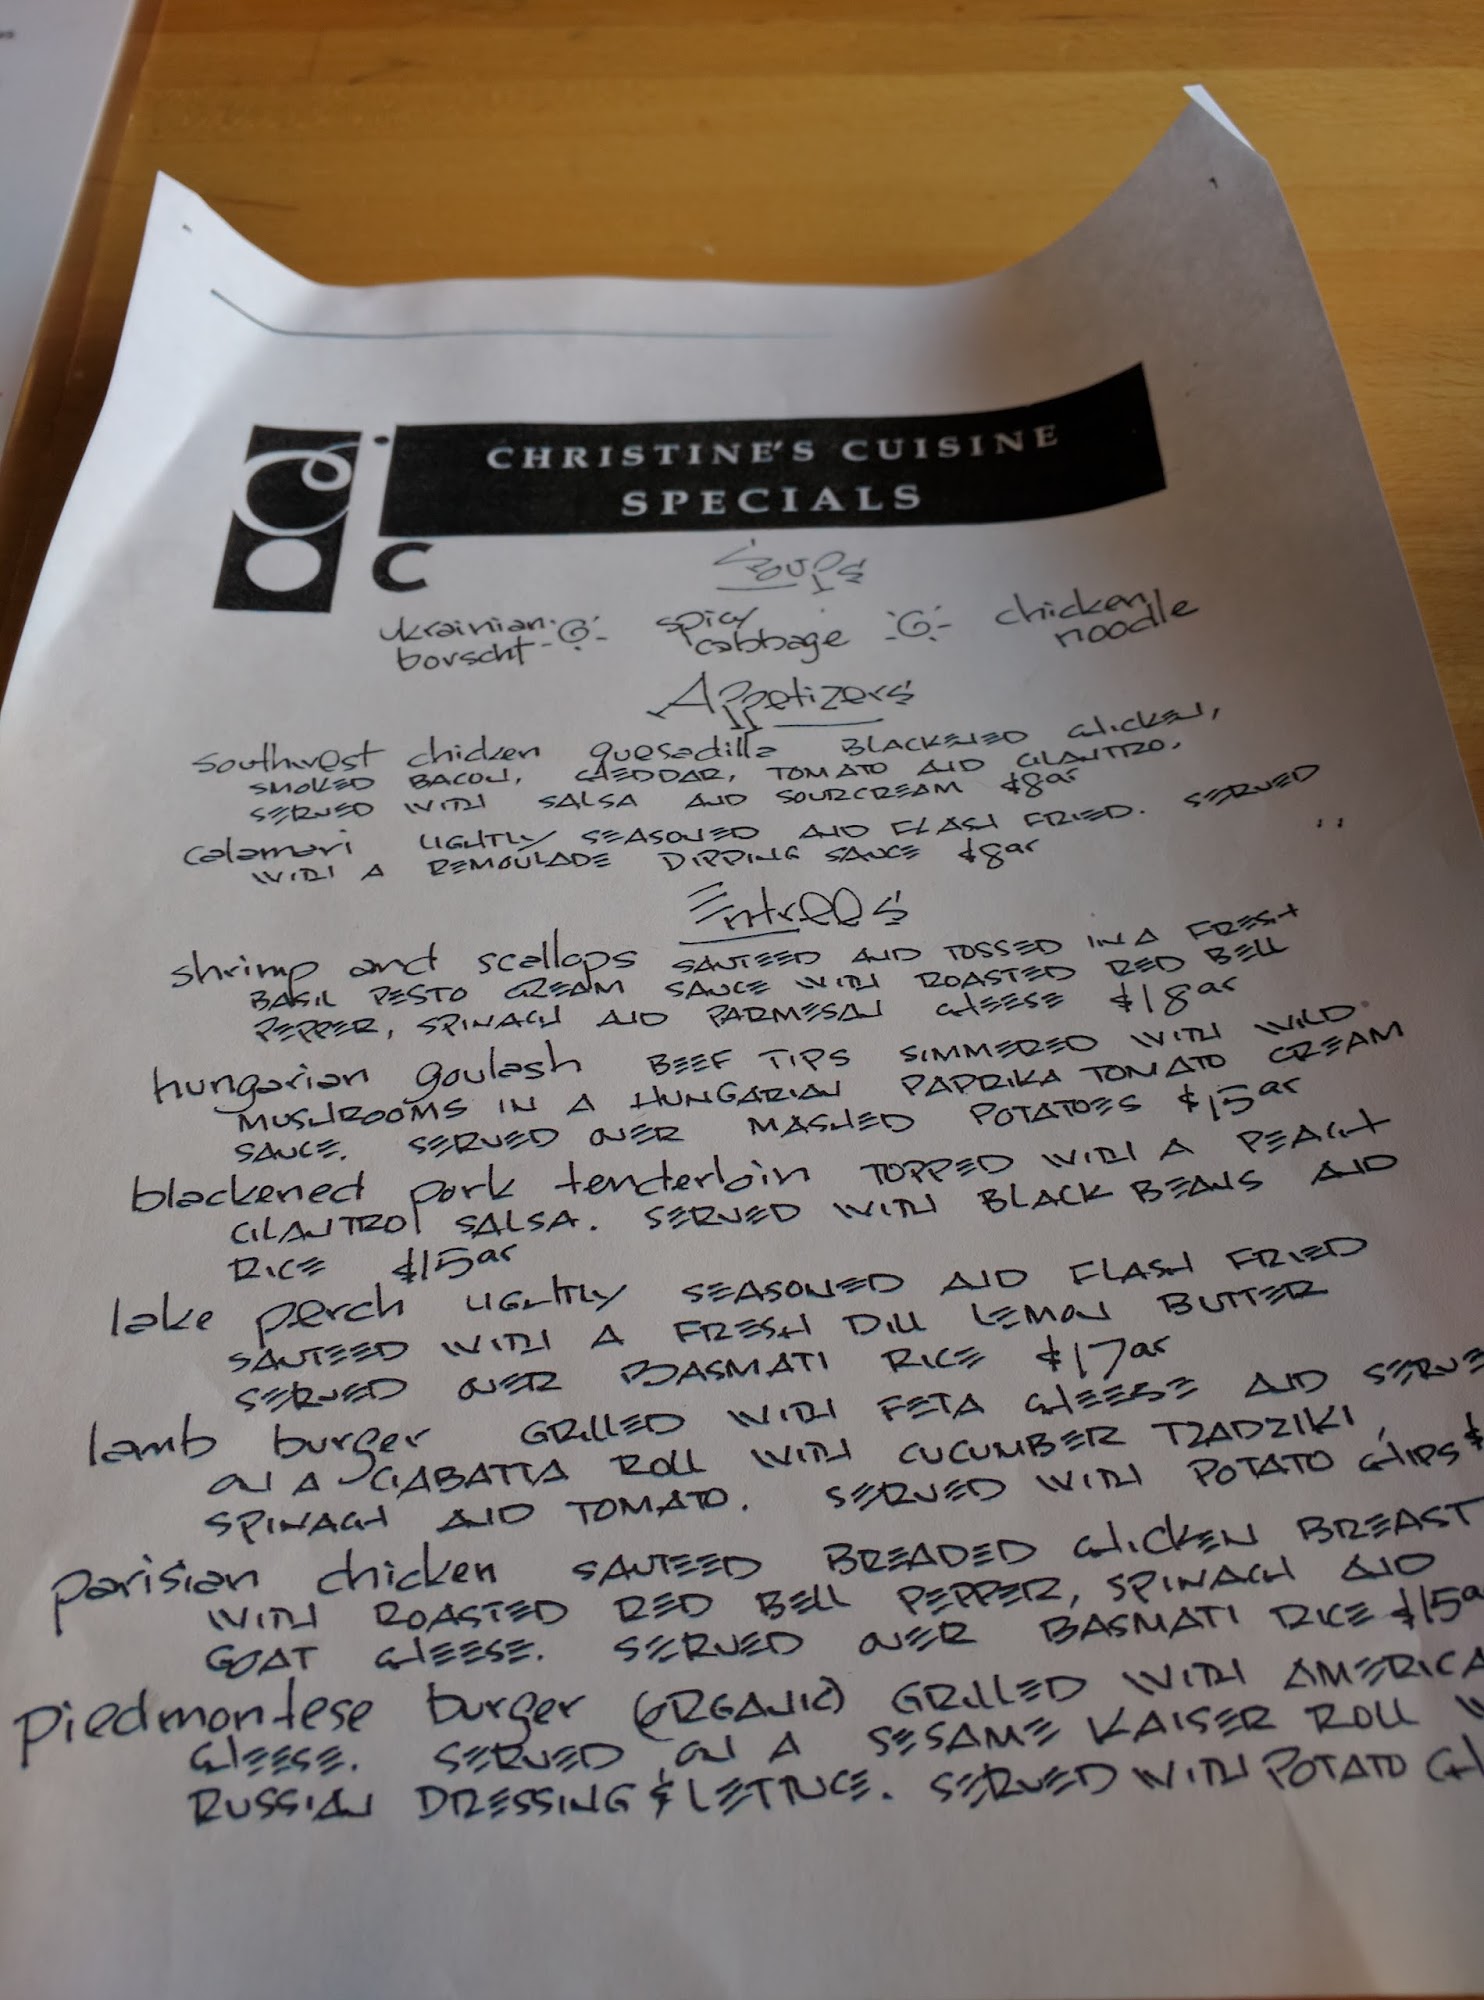 CHRISTINE'S CUISINE
SPECIALS
C
Soups
ukrainian borscht
spicy cabbage
chicken noodle
Appetizers
southwest chicken quesadilla BLACKENED CHICKEN,
SMOKED BACON, CHEDDAR, TOMATO AND CILANTRO.
SERVED WITH SALSA AND SOURCREAM $8
calamari LIGHTLY SEASONED AND FLASH FRIED. SERVED
WITH A REMOULADE DIPPING SAUCE $8
Entrees
shrimp and scallops SAUTEED AND TOSSED IN A FRESH
BASIL PESTO CREAM SAUCE WITH ROASTED RED BELL
PEPPER, SPINACH AND PARMESAN CHEESE $18
hungarian goulash BEEF TIPS SIMMERED WITH WILD
MUSHROOMS IN A HUNGARIAN PAPRIKA TOMATO CREAM
SAUCE. SERVED OVER MASHED POTATOES $15
blackened pork tenderloin TOPPED WITH A PEACH
CILANTRO SALSA. SERVED WITH BLACK BEANS AND
RICE $15
lake perch LIGHTLY SEASONED AND FLASH FRIED
SAUTEED WITH A FRESH DILL LEMON BUTTER
SERVED OVER BASMATI RICE $17
lamb burger GRILLED WITH FETA CHEESE AND SERVE
ON A CIABATTA ROLL WITH CUCUMBER TZADZIKI,
SPINACH AND TOMATO. SERVED WITH POTATO CHIPS $
parisian chicken SAUTEED BREADED CHICKEN BREAST
WITH ROASTED RED BELL PEPPER, SPINACH AND
GOAT CHEESE. SERVED OVER BASMATI RICE $15
piedmontese burger (ORGANIC) GRILLED WITH AMERICA
CHEESE. SERVED ON A SESAME KAISER ROLL W
RUSSIAN DRESSING & LETTUCE. SERVED WITH POTATO CH